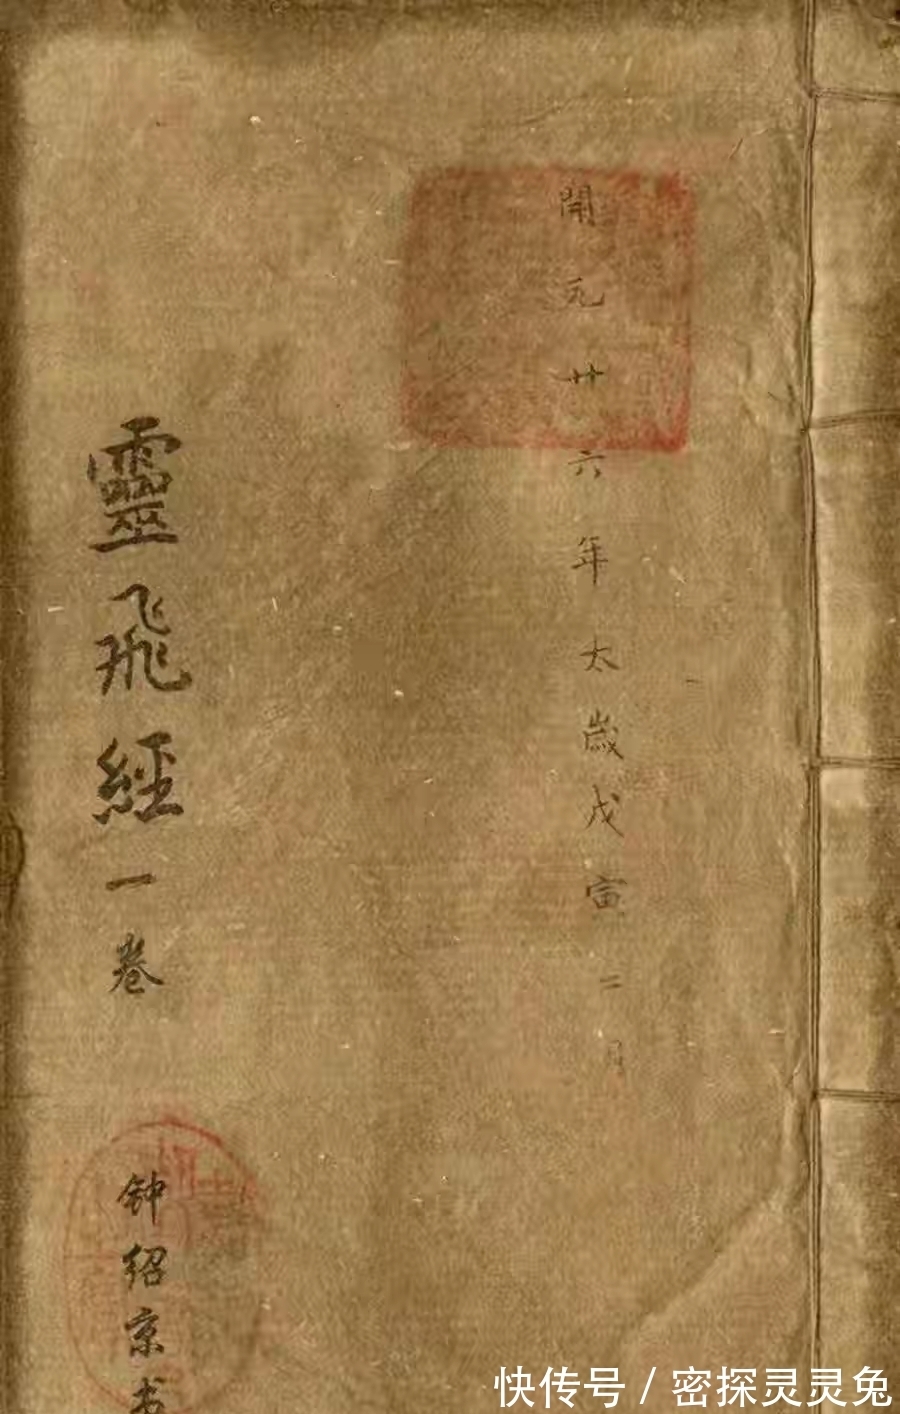 開元廿六年太歲戊寅二月
靈飛經一卷
钟绍京书
快传号/密探灵灵兔